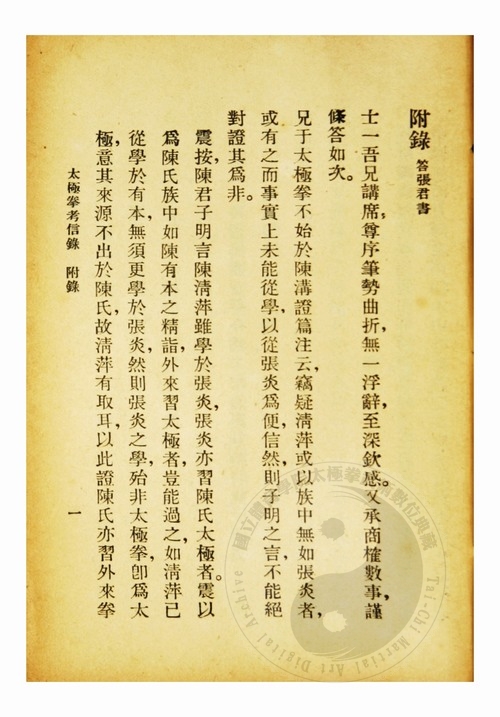 附錄 答張君書
士一吾兄講席,尊序筆勢曲折,無一浮辭,至深欽感。又承商榷數事,謹
條答如次。
兄于太極拳不始於陳溝證篇注云,竊疑清萍或以族中無如張炎者,
或有之而事實上未能從學,以從張炎爲便,信然,則子明之言,不能絕
對證其爲非。
震按,陳君子明言陳清萍雖學於張炎,張炎亦習陳氏太極者。震以
爲陳氏族中如陳有本之精詣,外來習太極者,豈能過之,如清萍已
從學於有本,無須更學於張炎,然則張炎之學,殆非太極拳,卽爲太
極,意其來源不出於陳氏,故清萍有取耳,以此證陳氏亦習外來拳
太極拳考信錄 附錄 一
國立 太極拳 數位典藏
Tai-Chi Martial Art Digital Archive